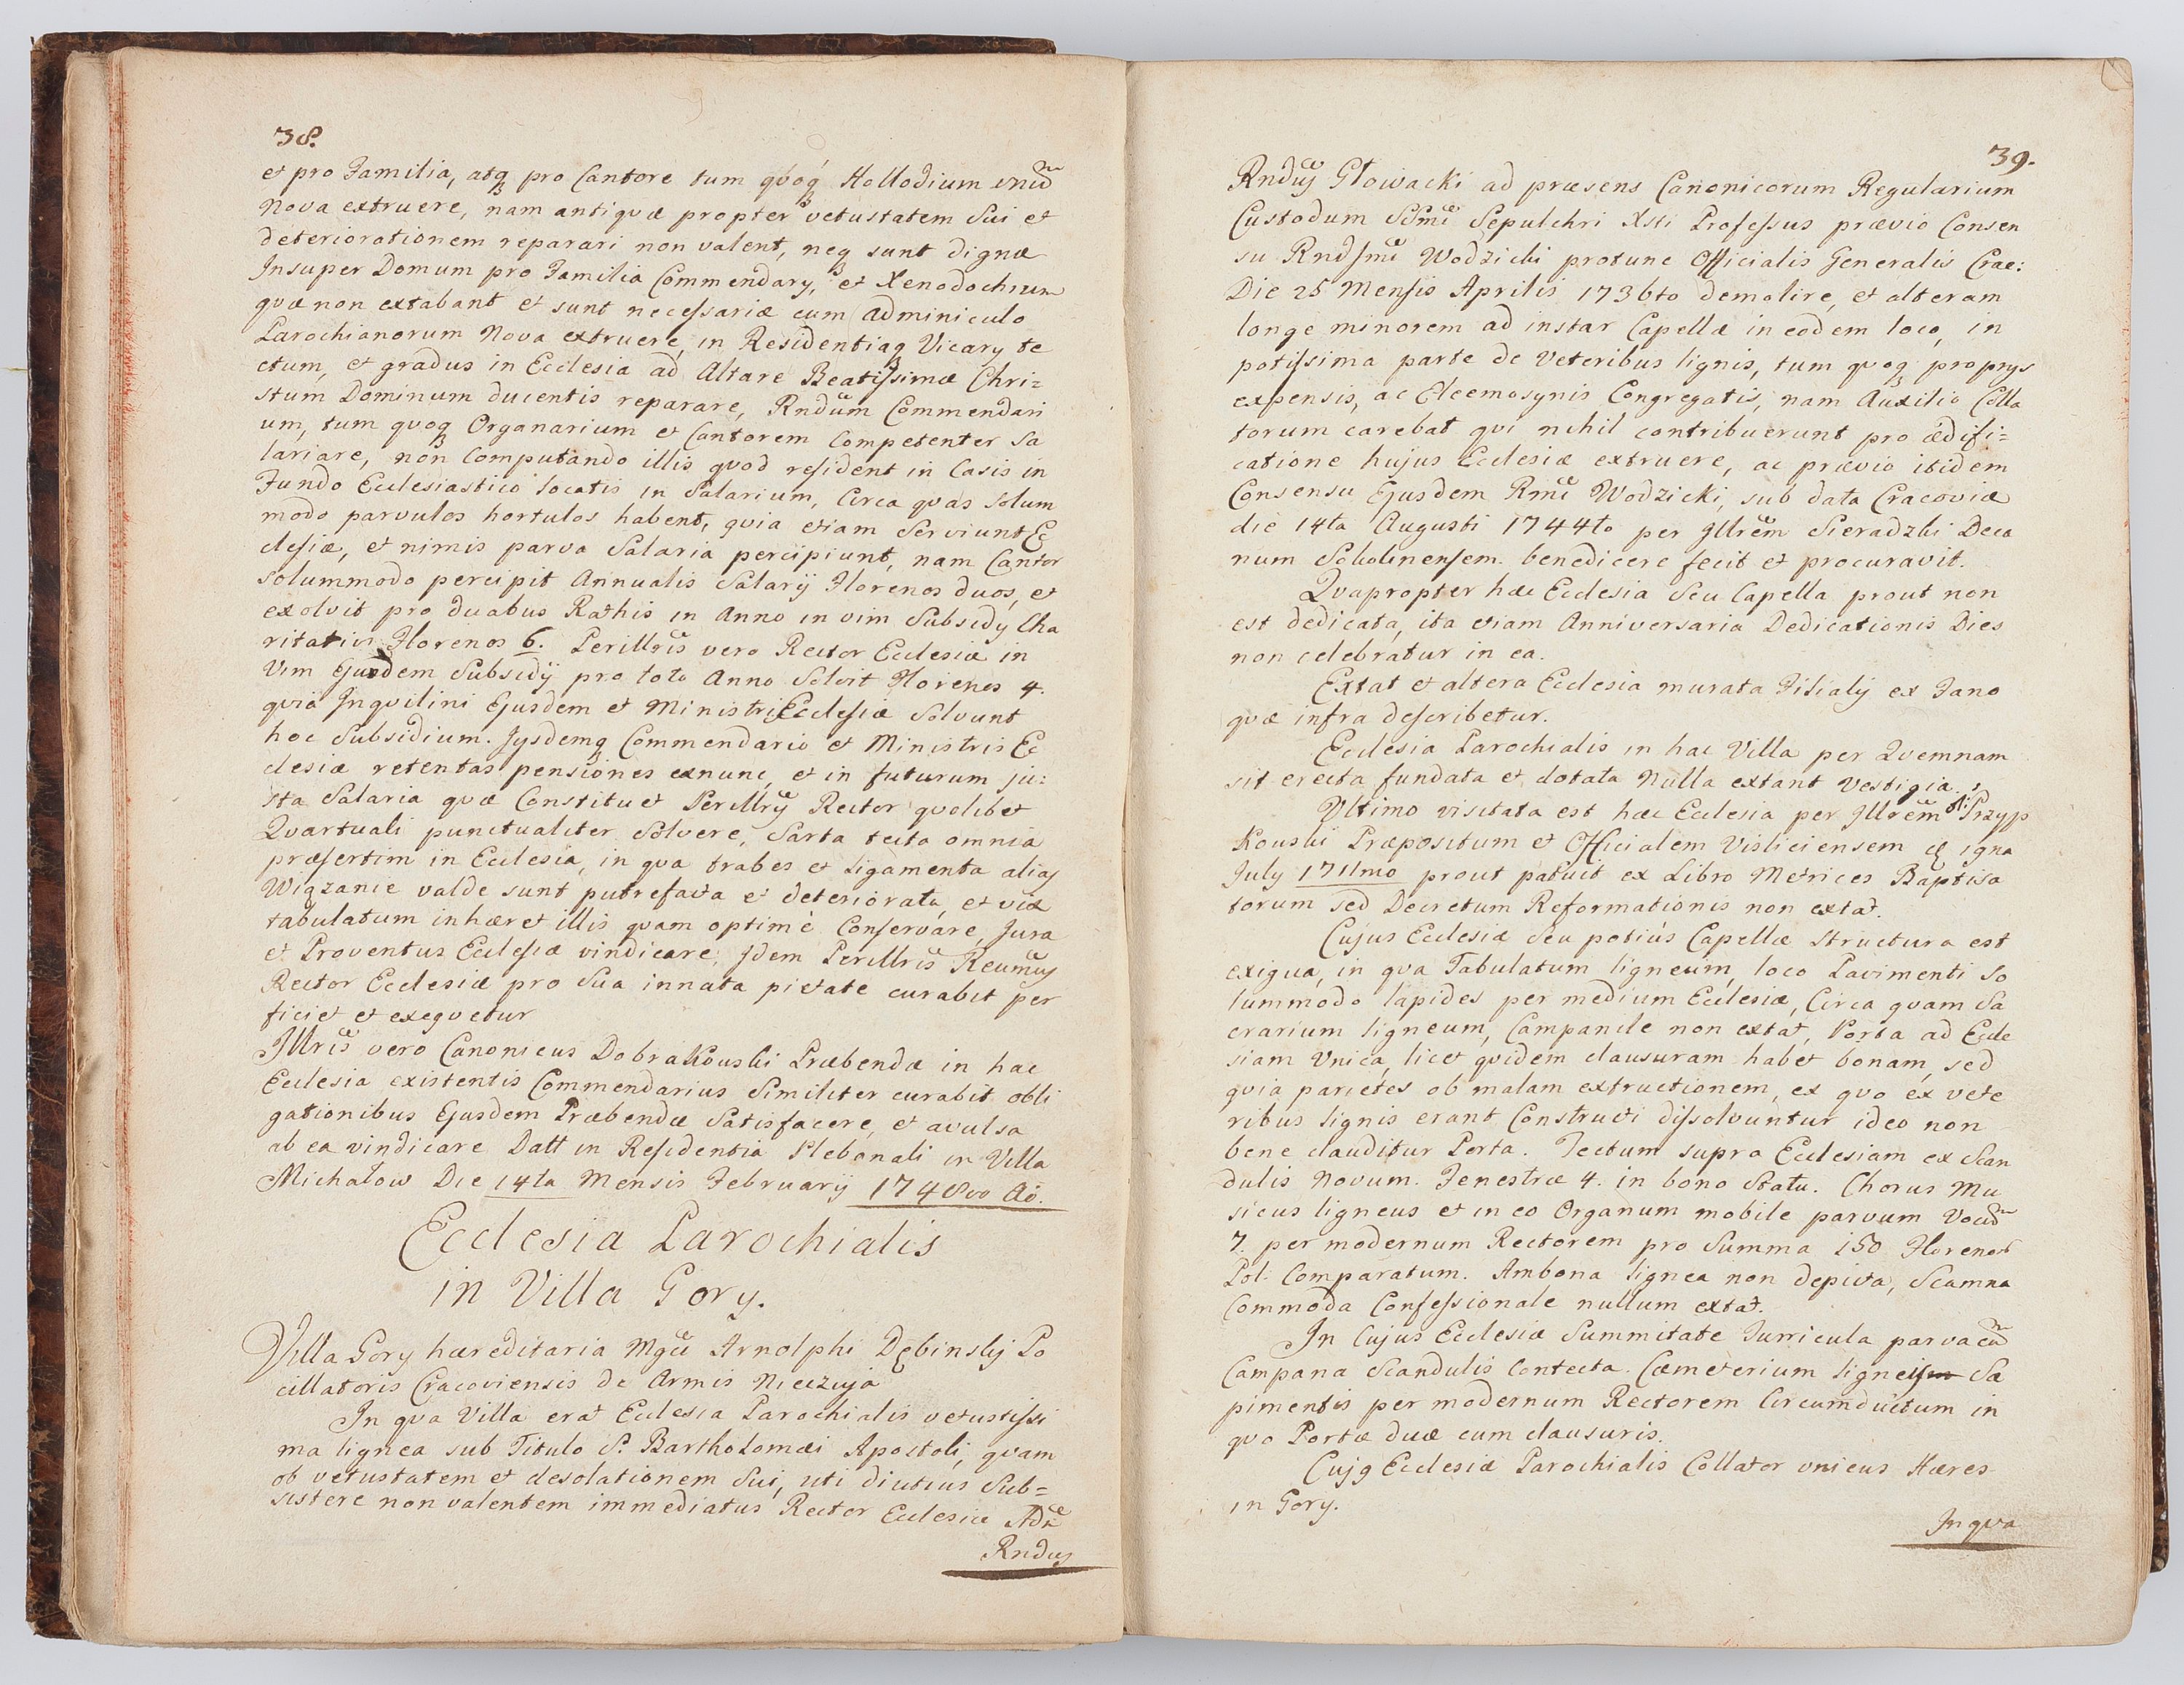 38.
et pro Familia, atq pro Cantore tum qvoq Hollodium
Nova extruere, nam antiqvæ propter vetustatem Sui et
deteriorationem reparari non valent, neq sunt dignæ
Insuper Domum pro Familia Commendarÿ, et Xenodochium
qvæ non extabant et sunt necessariæ cum adminiculo
Parochianorum Nova extruere, in Residentiaq Vicarÿ te
ctum, et gradus in Ecclesia ad Altare Beatissimæ Chri=
stum Dominum ducentis reparare, Rndum Commendari
um, tum qvoq Organarium et Cantorem Competenter Sa
lariare, non Computando illis qvod resident in Casis in
Fundo Ecclesiastico locatis in Salarium, Circa qvas solum
modo parvulos hortulos habent, qvia etiam Serviunt Ec
clesiæ, et nimis parva Salaria percipiunt, nam Cantor
Solummodo percipit Annualis Salarij Florenos duos, et
exolvit pro duabus Rathis in Anno in vim Subsidÿ Cha
ritativi Florenos 6. Perillris vero Rector Ecclesiæ in
Vim Ejusdem Subsidij pro toto Anno Solvit Florenos 4.
qvia Inqvilini Ejusdem et Ministri Ecclesiæ Solvunt
hoc Subsidium. Iÿsdemq Commendario et Ministris Ec
clesiæ retentas pensiones exnunc, et in futurum ju:
sta Salaria qvæ Constituet Perillris Rector qvolibet
Qvartuali punctualiter Solvere, Sarta tecta omnia
præsertim in Ecclesia, in qva trabes et ligamenta alias
Wiązanie valde sunt putrefacta et deteriorata, et vix
tabulatum inhæret illis qvam optimè Conservare, Jura
et Proventus Ecclesiæ vindicare, Idem Perillris Reumus
Rector Ecclesiæ pro Sua innata pietate curabit per
ficiet et exeqvetur
Illris vero Canonicus Dobrakowski Præbendæ in hac
Ecclesia existentis Commendarius Similiter curabit obli
gationibus Ejusdem Præbendæ Satisfacere, et avulsa
ab ea vindicare Datt in Residentia Plebanali in Villa
Michałow Die 14ta Mensis Februarij 1748vo Ao.
Ecclesia Parochialis
in Villa Gory.
Villa Gory hæreditaria Mgci Arnolphi Dębinskj Po
cillatoris Cracoviensis de Armis Nieczuja
In qva Villa erat Ecclesia Parochialis vetustissi
ma lignea sub Titulo S. Bartholomæi Apostoli, qvam
ob vetustatem et desolationem Sui, uti diutius Sub=
sistere non valentem immediatus Rector Ecclesiæ Adr
Rndus
39.
Rndus Głowacki ad præsens Canonicorum Regularium
Custodum SSmi Sepulchri Xsti Professus prævio Consen
su Rndsmi Wodzicki protunc Officialis Generalis Crac:
Die 25 Mensis Aprilis 1736to demolire, et alteram
longe minorem ad instar Capellæ in eodem loco, in
potissima parte de Veteribus lignis, tum qvoq proprÿs
expensis, ac Eleemosynis Congregatis, nam Auxilio Colla
torum carebat qvi nihil contribuerunt pro ædifi=
catione hujus Ecclesiæ extruere, ac prævio itidem
Consensu Ejusdem Rmi Wodzicki, sub data Cracoviæ
die 14ta Augusti 1744to per Illrem Sieradzki Deca
num Scholinensem benedicere fecit et procuravit.
Qvapropter hæc Ecclesia Seu Capella prout non
est dedicata, ita etiam Anniversaria Dedicationis Dies
non celebratur in ea.
Extat et altera Ecclesia murata Filialis ex Fano
qvæ infra describetur.
Ecclesia Parochialis in hac Villa per Qvemnam
sit erecta fundata et dotata Nulla extant Vestigia.
Ultimo visitata est hæc Ecclesia per Illrem olim Przyp
kowski Præpositum et Officialem Visliciensem
July 1711mo prout patuit ex Libro Metrices Baptisa
torum sed Decretum Reformationis non extat.
Cujus Ecclesiæ Seu potius Capellæ Structura est
exigua, in qva Tabulatum ligneum, loco Pavimenti So
lummodo lapides per medium Ecclesiæ, Circa qvam Sa
crarium ligneum, Campanile non extat, Porta ad Eccle
siam Unica, licet qvidem clausuram habet bonam, sed
qvia parietes ob malam extructionem, ex qvo ex vete
ribus lignis erant Constructi dissolvuntur ideo non
bene clauditur Porta. Tectum supra Ecclesiam ex Scan
dulis Novum. Fenestræ 4. in bono Statu. Chorus Mu
sicus ligneus et in eo Organum mobile parvum Vocum
7. per modernum Rectorem pro Summa 150 Florenos
Pol: Comparatum. Ambona lignea non depicta, Scamna
Commoda Confessionale nullum extat.
In Cujus Ecclesiæ Summitate Turricula parva cum
Campana Scandulis Contecta. Cæmeterium ligneis Sæ
pimentis per modernum Rectorem Circumductum in
qvo Portæ duæ cum clausuris.
Cujq Ecclesiæ Parochialis Collator unicus Hæres
in Gory.
In qva